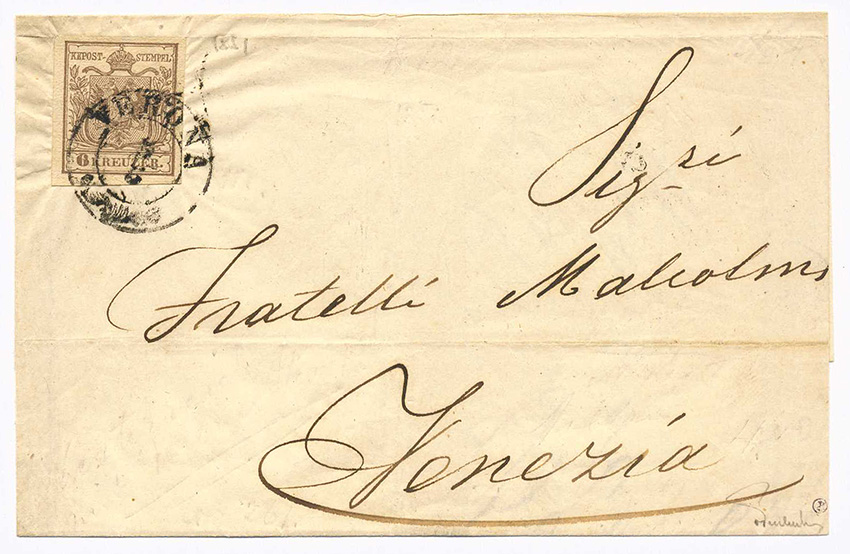 KKPOST-STEMPEL
6 KREUZER.
VERONA
Sig.ri
Fratelli Malcolm
Venezia